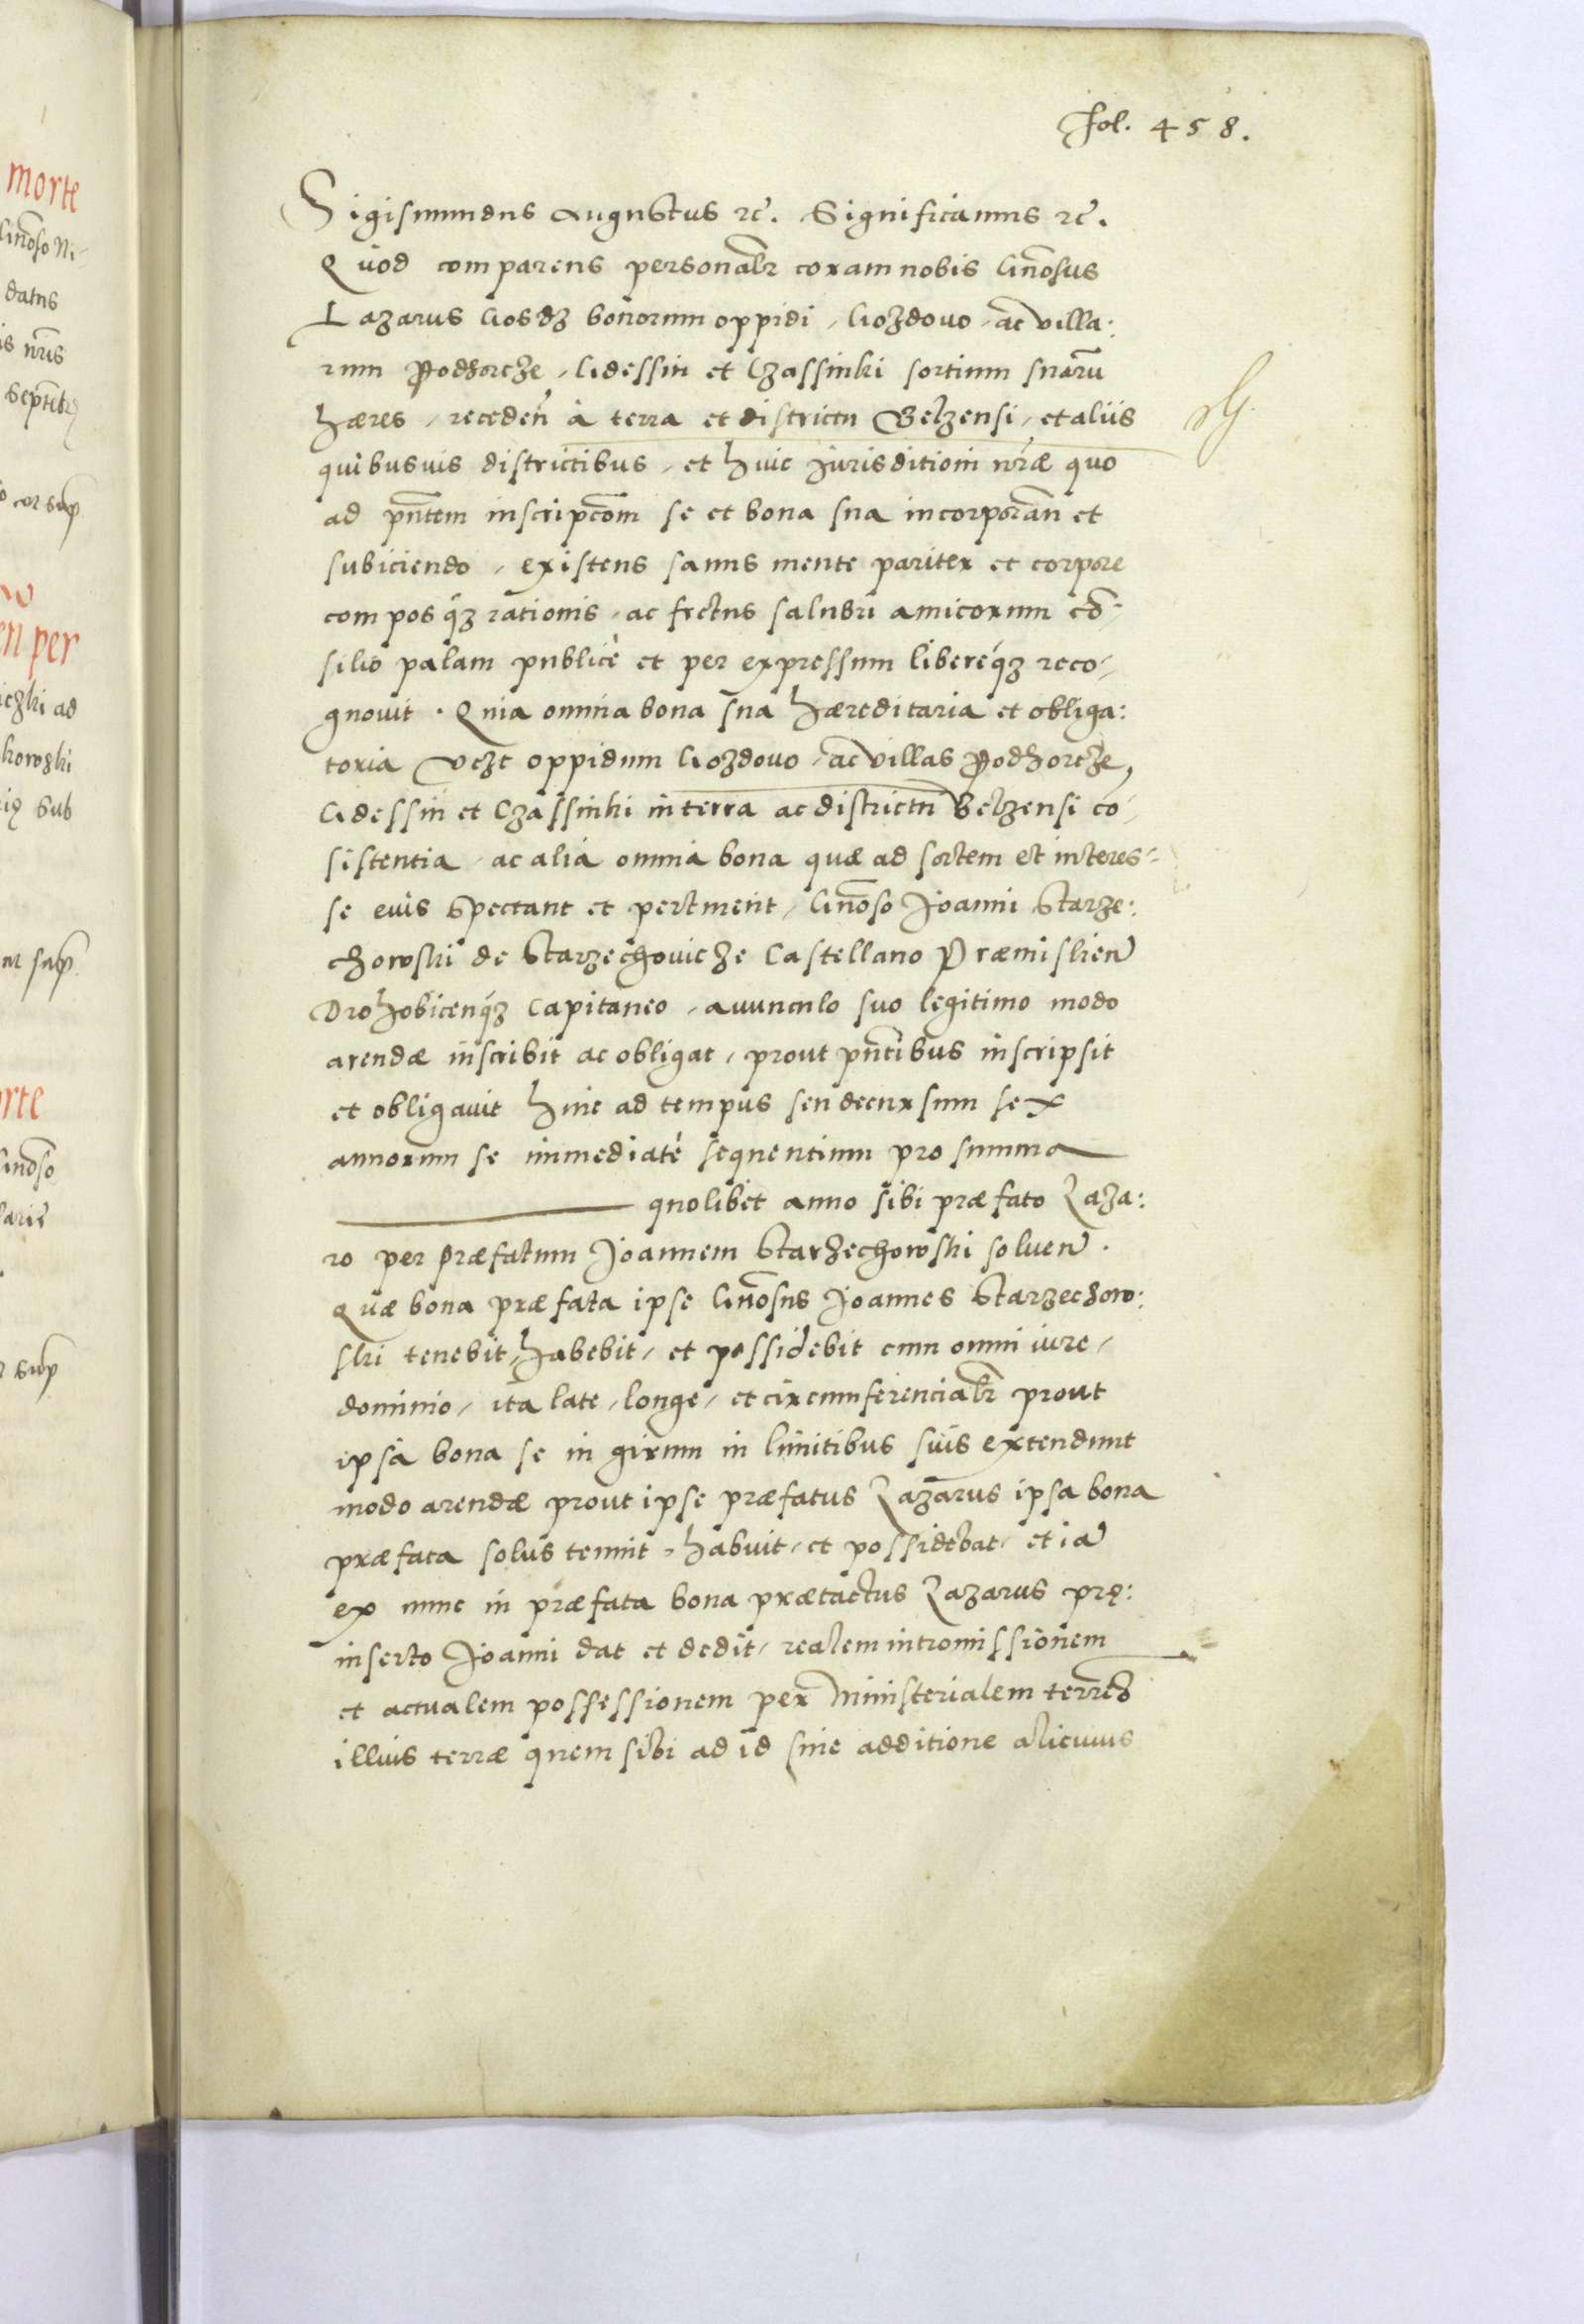 morte
Gnōso Ni-
datus
is nr̄is
Septēbr
cor sup
en per
iczki ad
kowski
sub
sup
rte
Gnōso
sup
fol. 458.
Sigismundus Augustus rc̄. Significamus rc̄.
Quod comparens personalr̄ coram nobis Gnōsus
Lazarus Gosdz bonorum oppidi, Gozdovo, ac villa:
rum Podhorcze, Gdessin et Czassinki sortium suarū
hæres, recedeñ à terra et districtu Belzensi, et aliis
quibusuis districtibus, et huic iurisditioni nr̄æ quo
ad pn̄tem inscripcōm se et bona sua incorporan̄ et
subiciendo, existens sanus mente pariter et corpore
compos q́z rationis, ac fretus salubri amicorum cō-
silio palam publicè et per expressum libereq́z reco-
gnouit. Quia omnia bona sua hæreditaria et obliga:
toria vczt oppidum Gozdovo, ac villas Podhorcze,
Gdessin et Czassinki in terra ac districtu Belzensi cō-
sistentia, ac alia omnia bona quæ ad sortem et interes-
se euis spectant et pertinent, Gnōso Joanni Starze:
chowski de Starzechovicze Castellano Præmislieñ
Drohobiceñq́z Capitaneo, auunculo suo legitimo modo
arendæ inscribit ac obligat, prout pn̄tibus inscripsit
et obligauit hinc ad tempus seu decursum sex
annorum se immediatè sequentium pro summa
quolibet anno sibi præfato Laza:
ro per præfatum Joannem Starzechowski solueñ.
Quæ bona præfata ipse Gnōsus Joannes Starzechow:
ski tenebit, habebit, et possidebit cum omni iure,
dominio, ita late, longe, et circumferencialr̄ prout
ipsa bona se in girum in limitibus suis extendunt
modo arendæ prout ipse præfatus Lazarus ipsa bona
præfata solus tenuit, habuit, et possidebat, et iā
ex nunc in præfata bona prætactus Lazarus prę:
inserto Joanni dat et dedit, realem intromissionem
et actualem possessionem per Ministerialem terreš
illius terræ quem sibi ad id sine additione alicuius